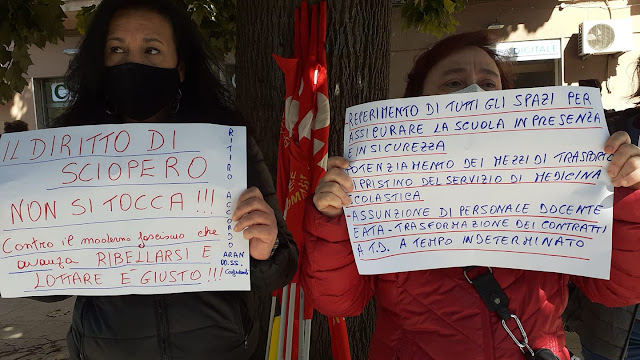 IL DIRITTO DI
SCIOPERO
NON SI TOCCA !!!
Contro il moderno fascismo che
avanza RIBELLARSI E
LOTTARE E' GIUSTO!!!
RITIRO ACCORDO
ARAN
OO.SS.
-REPERIMENTO DI TUTTI GLI SPAZI PER
ASSICURARE LA SCUOLA IN PRESENZA
E IN SICUREZZA
POTENZIAMENTO DEI MEZZI DI TRASPORTO
RIPRISTINO DEL SERVIZIO DI MEDICINA
SCOLASTICA
-ASSUNZIONE DI PERSONALE DOCENTE
E ATA - TRASFORMAZIONE DEI CONTRATTI
A T.D. A TEMPO INDETERMINATO
DIGITALE